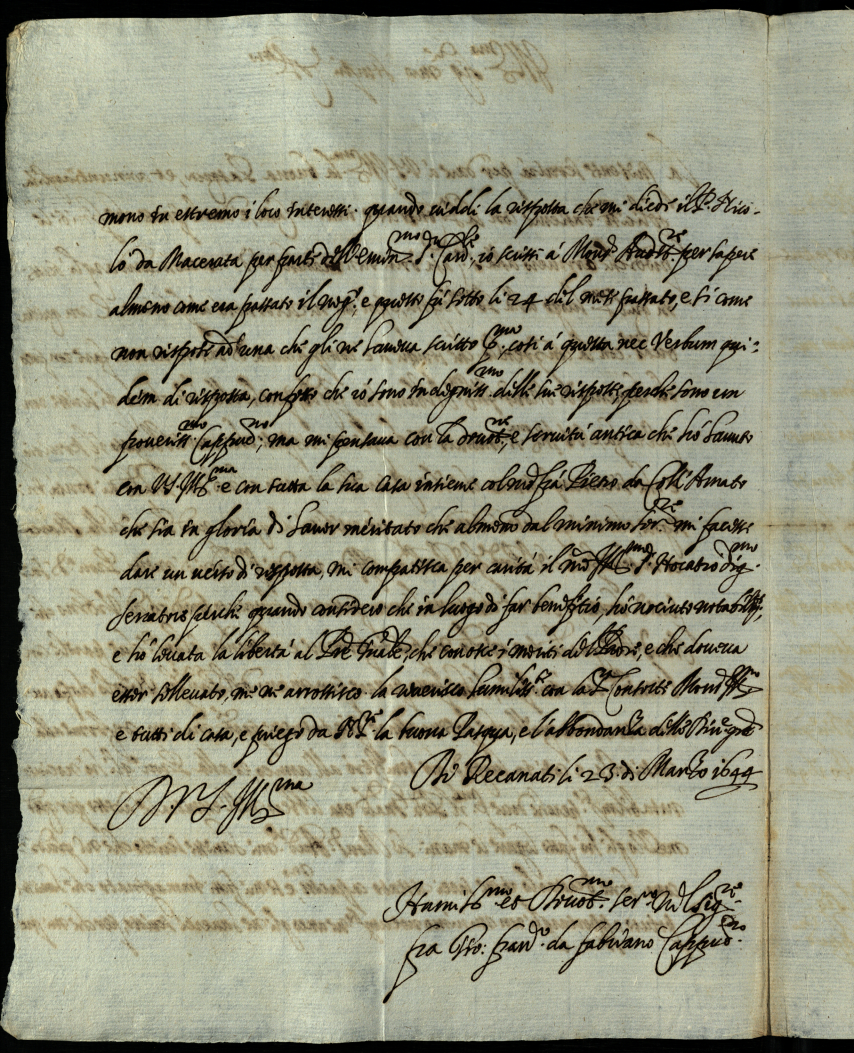 mono in estremo i loro interessi. quando viddi la risposta che mi diede il P. Nico-
lò da Macerata per parte dell'Emin.mo S.r Card.le, io scrissi à Mons.r per sapere
almeno come era passato il neg.o, e questo fù sotto li 24 del mese passato, e si come
non rispose ad una che gli ne haveva scritto p.ma, così à questa nec Verbum qui-
dem di risposta, confesso che io sono indigniss.mo delle sue risposte, perche sono un
poveriss.mo Cappuc.no, ma mi pensava con la devot.ne, e servitù antica che hò havuto
con V.S. Ill.ma e con tutta la sua Casa insieme col frà Pietro da
che sia in gloria di haver meritato che almeno dal minimo ser.re mi facesse
dare un verso di risposta, mi compatisca per carità il Ill.mo S. Horatio
perche quando considero che in luogo di far benefitio, hò nociuto
e hò levata la libertà al che conosce i meriti del e che doveva
esser sollevato, me ne arrossisco. la riverisco humiliss.te con la S.ra Contessa Mons.r Ill.mo
e tutti di casa, e priego da N.S.re la buona Pasqua, e l'abbondanza delle Divine gratie
Di Recanati li 23 di Marzo 1644
D V.S. Ill.ma
Humiliss.mo et Devot.mo ser.re nel Sig.re
fra Gio: Fran.co da Fabriano Cappuc.no